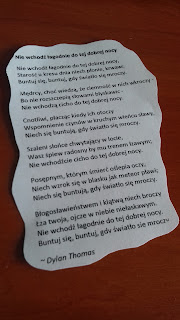 Nie wchodź łagodnie do tej dobrej nocy
Nie wchodź łagodnie do tej dobrej nocy,
Starość u kresu dnia niech płonie, krwawi;
Buntuj się, buntuj, gdy światło się mroczy.
Mędrcy, choć wiedzą, że ciemność w nich wkroczy -
Bo nie rozszczepią słowami błyskawic -
Nie wchodzą cicho do tej dobrej nocy.
Cnotliwi, płacząc kiedy ich otoczy
Wspomnienie czynów w kruchym wieńcu sławy,
Niech się buntują, gdy światło się mroczy.
Szaleni słońce chwytający w locie,
Wasz śpiew radosny by mu trenem łzawym;
Nie wchodźcie cicho do tej dobrej nocy.
Posępnym, którym śmierć oślepia oczy,
Niech wzrok się w blasku jak meteor pławi;
Niech się buntują, gdy światło się mroczy.
Błogosławieństwem i klątwą niech broczy
Łza twoja, ojcze w niebie niełaskawym.
Nie wchodź łagodnie do tej dobrej nocy,
Buntuj się, buntuj, gdy światło się mroczy.
~ Dylan Thomas